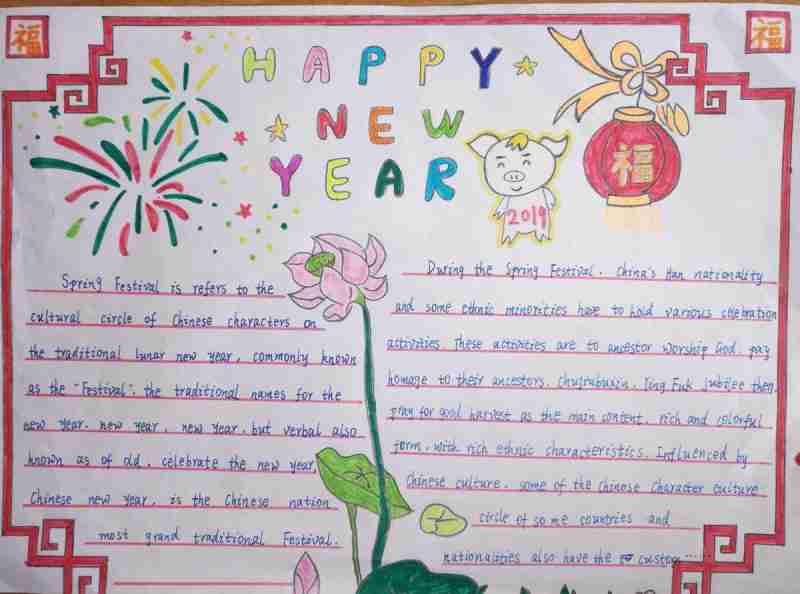 福
福
HAPPY
NEW
YEAR
福
2019
Spring Festival is refers to the
cultural circle of Chinese characters on
the traditional lunar new year, commonly known
as the "Festival", the traditional names for the
new year, new year, new year, but verbal also
known as of old, celebrate the new year,
Chinese new year, is the Chinese nation
most grand traditional Festival.
During the Spring Festival, China's Han nationality
and some ethnic minorities have to hold various celebration
activities. These activities are to ancestor worship God, pay
homage to their ancestors, chujiubuxin, Ying Fuk jubilee then,
pray for good harvest as the main content, rich and colorful
form, with rich ethnic characteristics. Influenced by
Chinese culture, some of the Chinese character culture
circle of some countries and
nationalities also have the custom ......